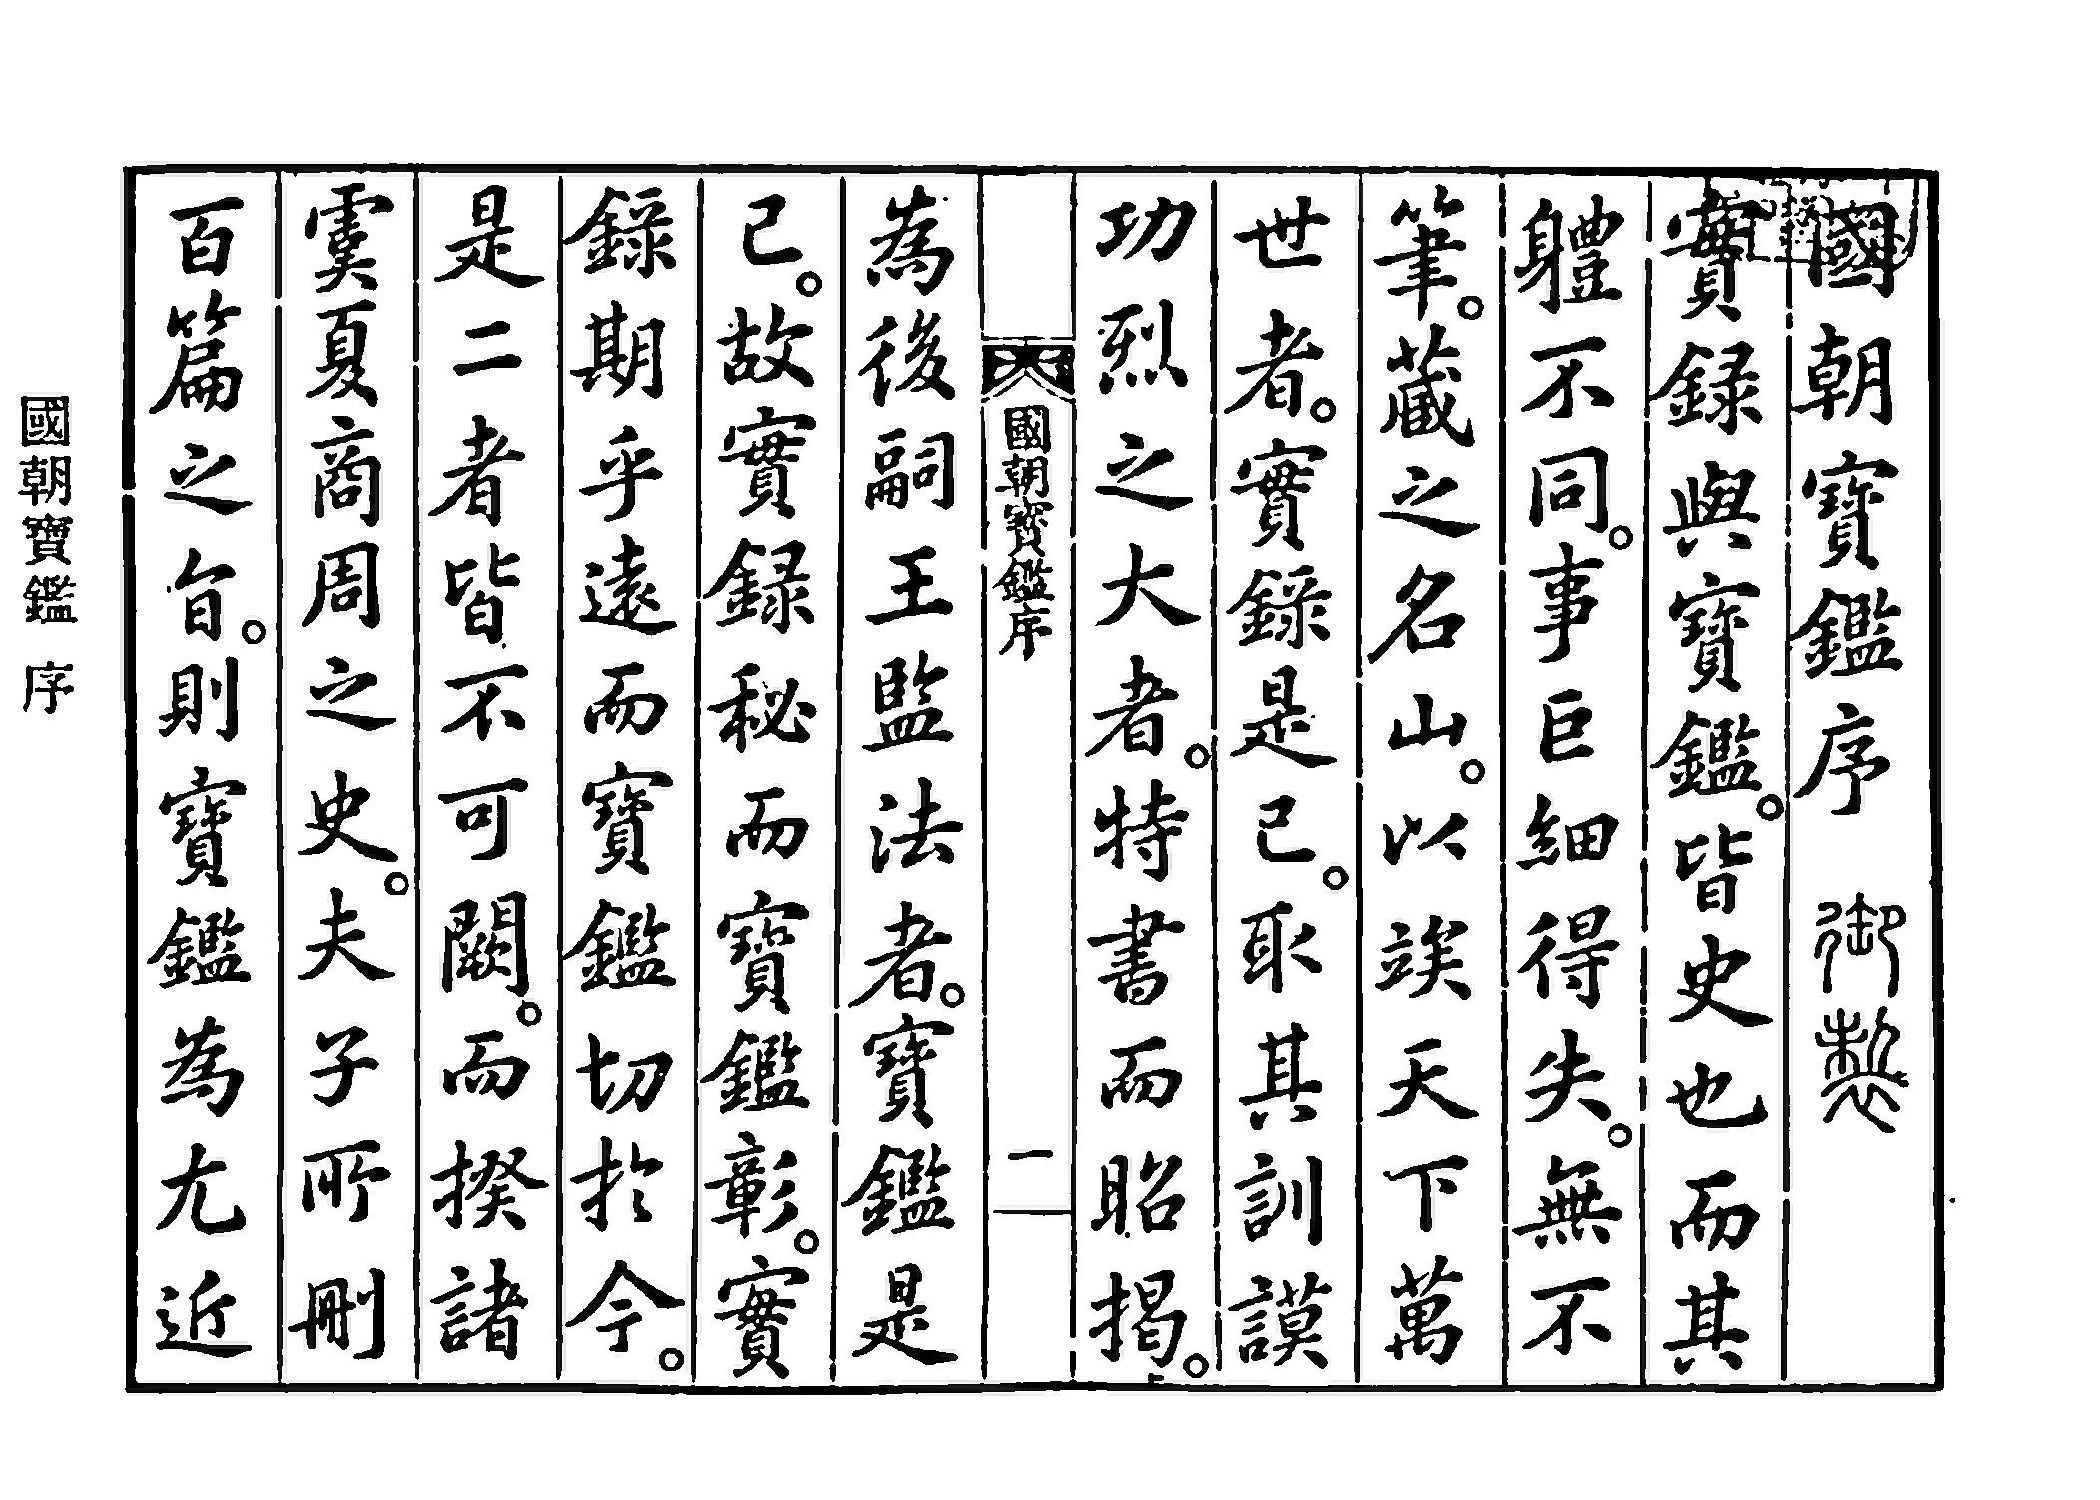 國朝寶鑑序 御製
實錄與寶鑑。皆史也而其
軆不同。事巨細得失。無不
筆。藏之名山。以竢天下萬
世者。實錄是已。取其訓謨
功烈之大者。特書而昭揭。
國朝寶鑑序 一
為後嗣王監法者。寶鑑是
已。故實錄秘而寶鑑彰。實
錄期乎遠而寶鑑切於今。
是二者皆不可闕。而揆諸
虞夏商周之史。夫子所刪
百篇之旨。則寶鑑為尤近
國朝寶鑑 序